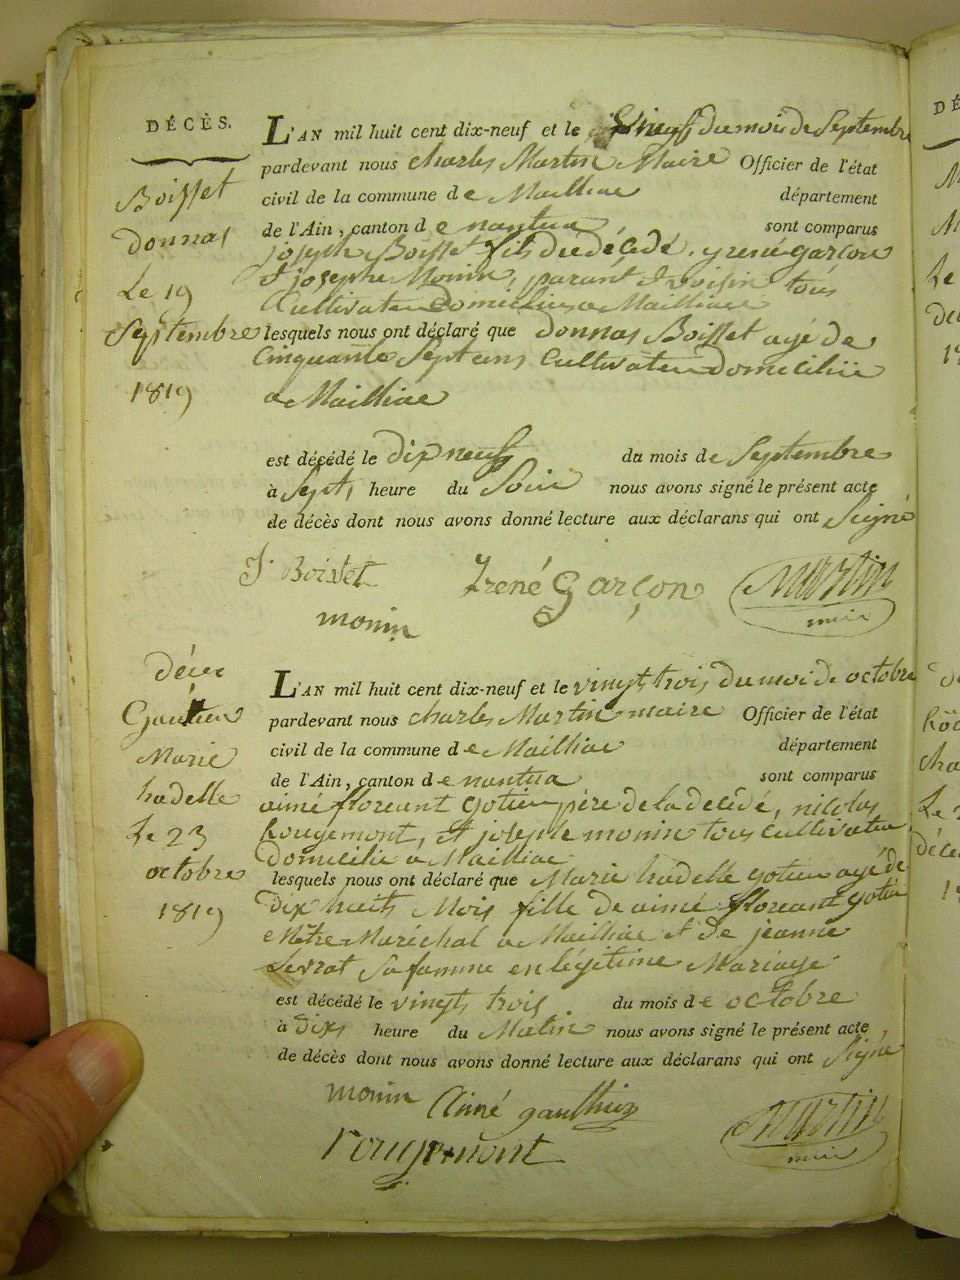 DÉCÈS.
Boisset
donnas
Le 19
Septembre
1819
L'AN mil huit cent dix-neuf et le neuf du mois de Septembre
pardevant nous charles Martin Maire Officier de l'état
civil de la commune de Mailliac département
de l'Ain, canton de nantua sont comparus
joseph Boisset fils du décédé, yrené garçon
et josephe Monin, parant et voisin tous
Cultivateur domiciliés a Mailliac
lesquels nous ont déclaré que donnas Boisset agé de
Cinquante Sept ans Cultivateur domicilié
a Mailliac
est décédé le dix neuf du mois de Septembre
à Sept heure du Soir nous avons signé le présent acte
de décès dont nous avons donné lecture aux déclarans qui ont Signé
J. Boisset Irené Garçon Martin
monin maire
décès
Gautier
Marie
hadelle
Le 23
octobre
1819
L'AN mil huit cent dix-neuf et le vingt trois du moi de octobre
pardevant nous charles Martin maire Officier de l'état
civil de la commune de Mailliac département
de l'Ain, canton de nantua sont comparus
aimé floreant gotier père de la décédé, nicolas
Rougemont, et joseple monin tous Cultivateur
domicilié a Mailliac
lesquels nous ont déclaré que Marie hadelle gotier agé de
dix huits Mois fille de aimé floreant gotier
Mètre Maréchal a Mailliac et de jeanne
Levrat Sa famme en légitime Mariage
est décédé le vingt trois du mois de octobre
à dix heure du Matin nous avons signé le présent acte
de décès dont nous avons donné lecture aux déclarans qui ont Signé
monin Aimé gauthier Martin
rougemont maire
DÉ
Le
Le
décè